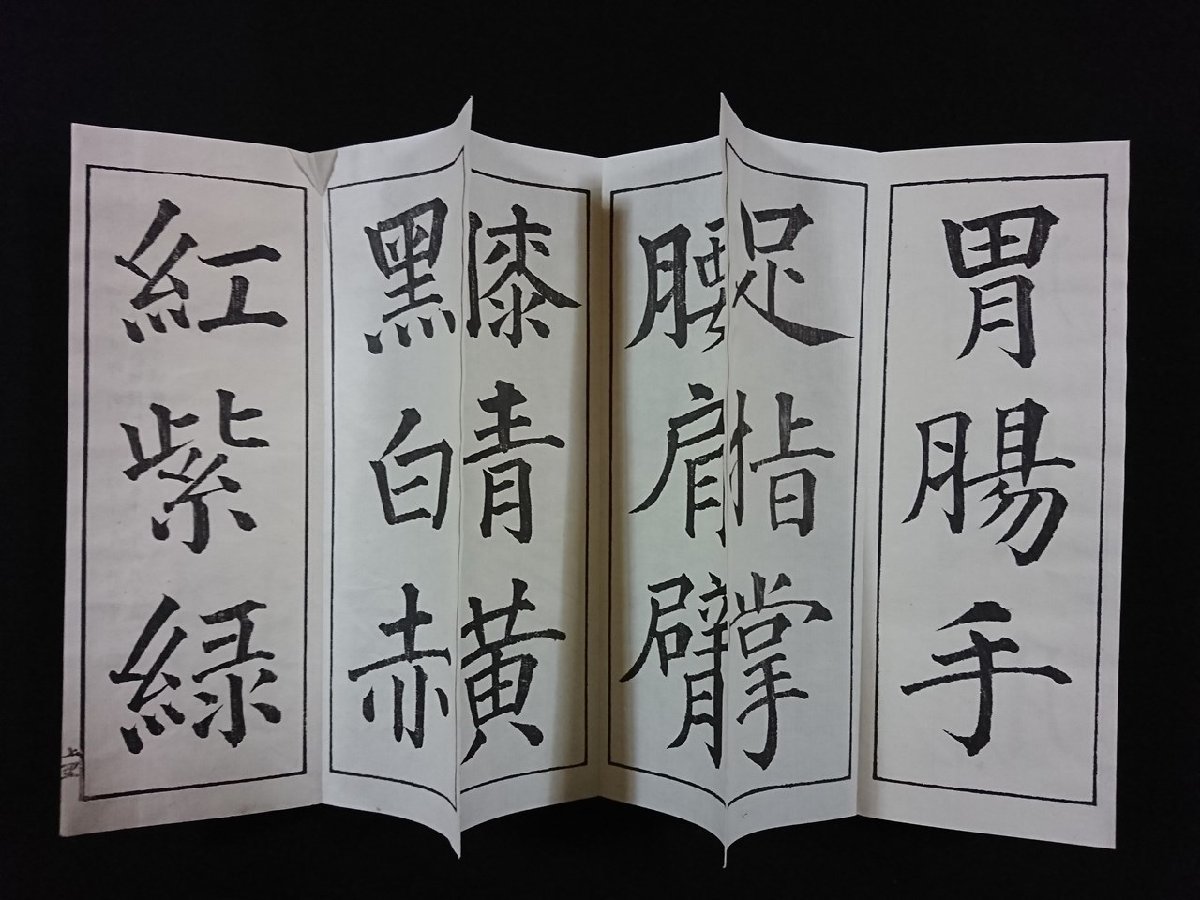 胃腸手
足指掌
腰肩臂
膝青黄
黑白赤
紅紫緑